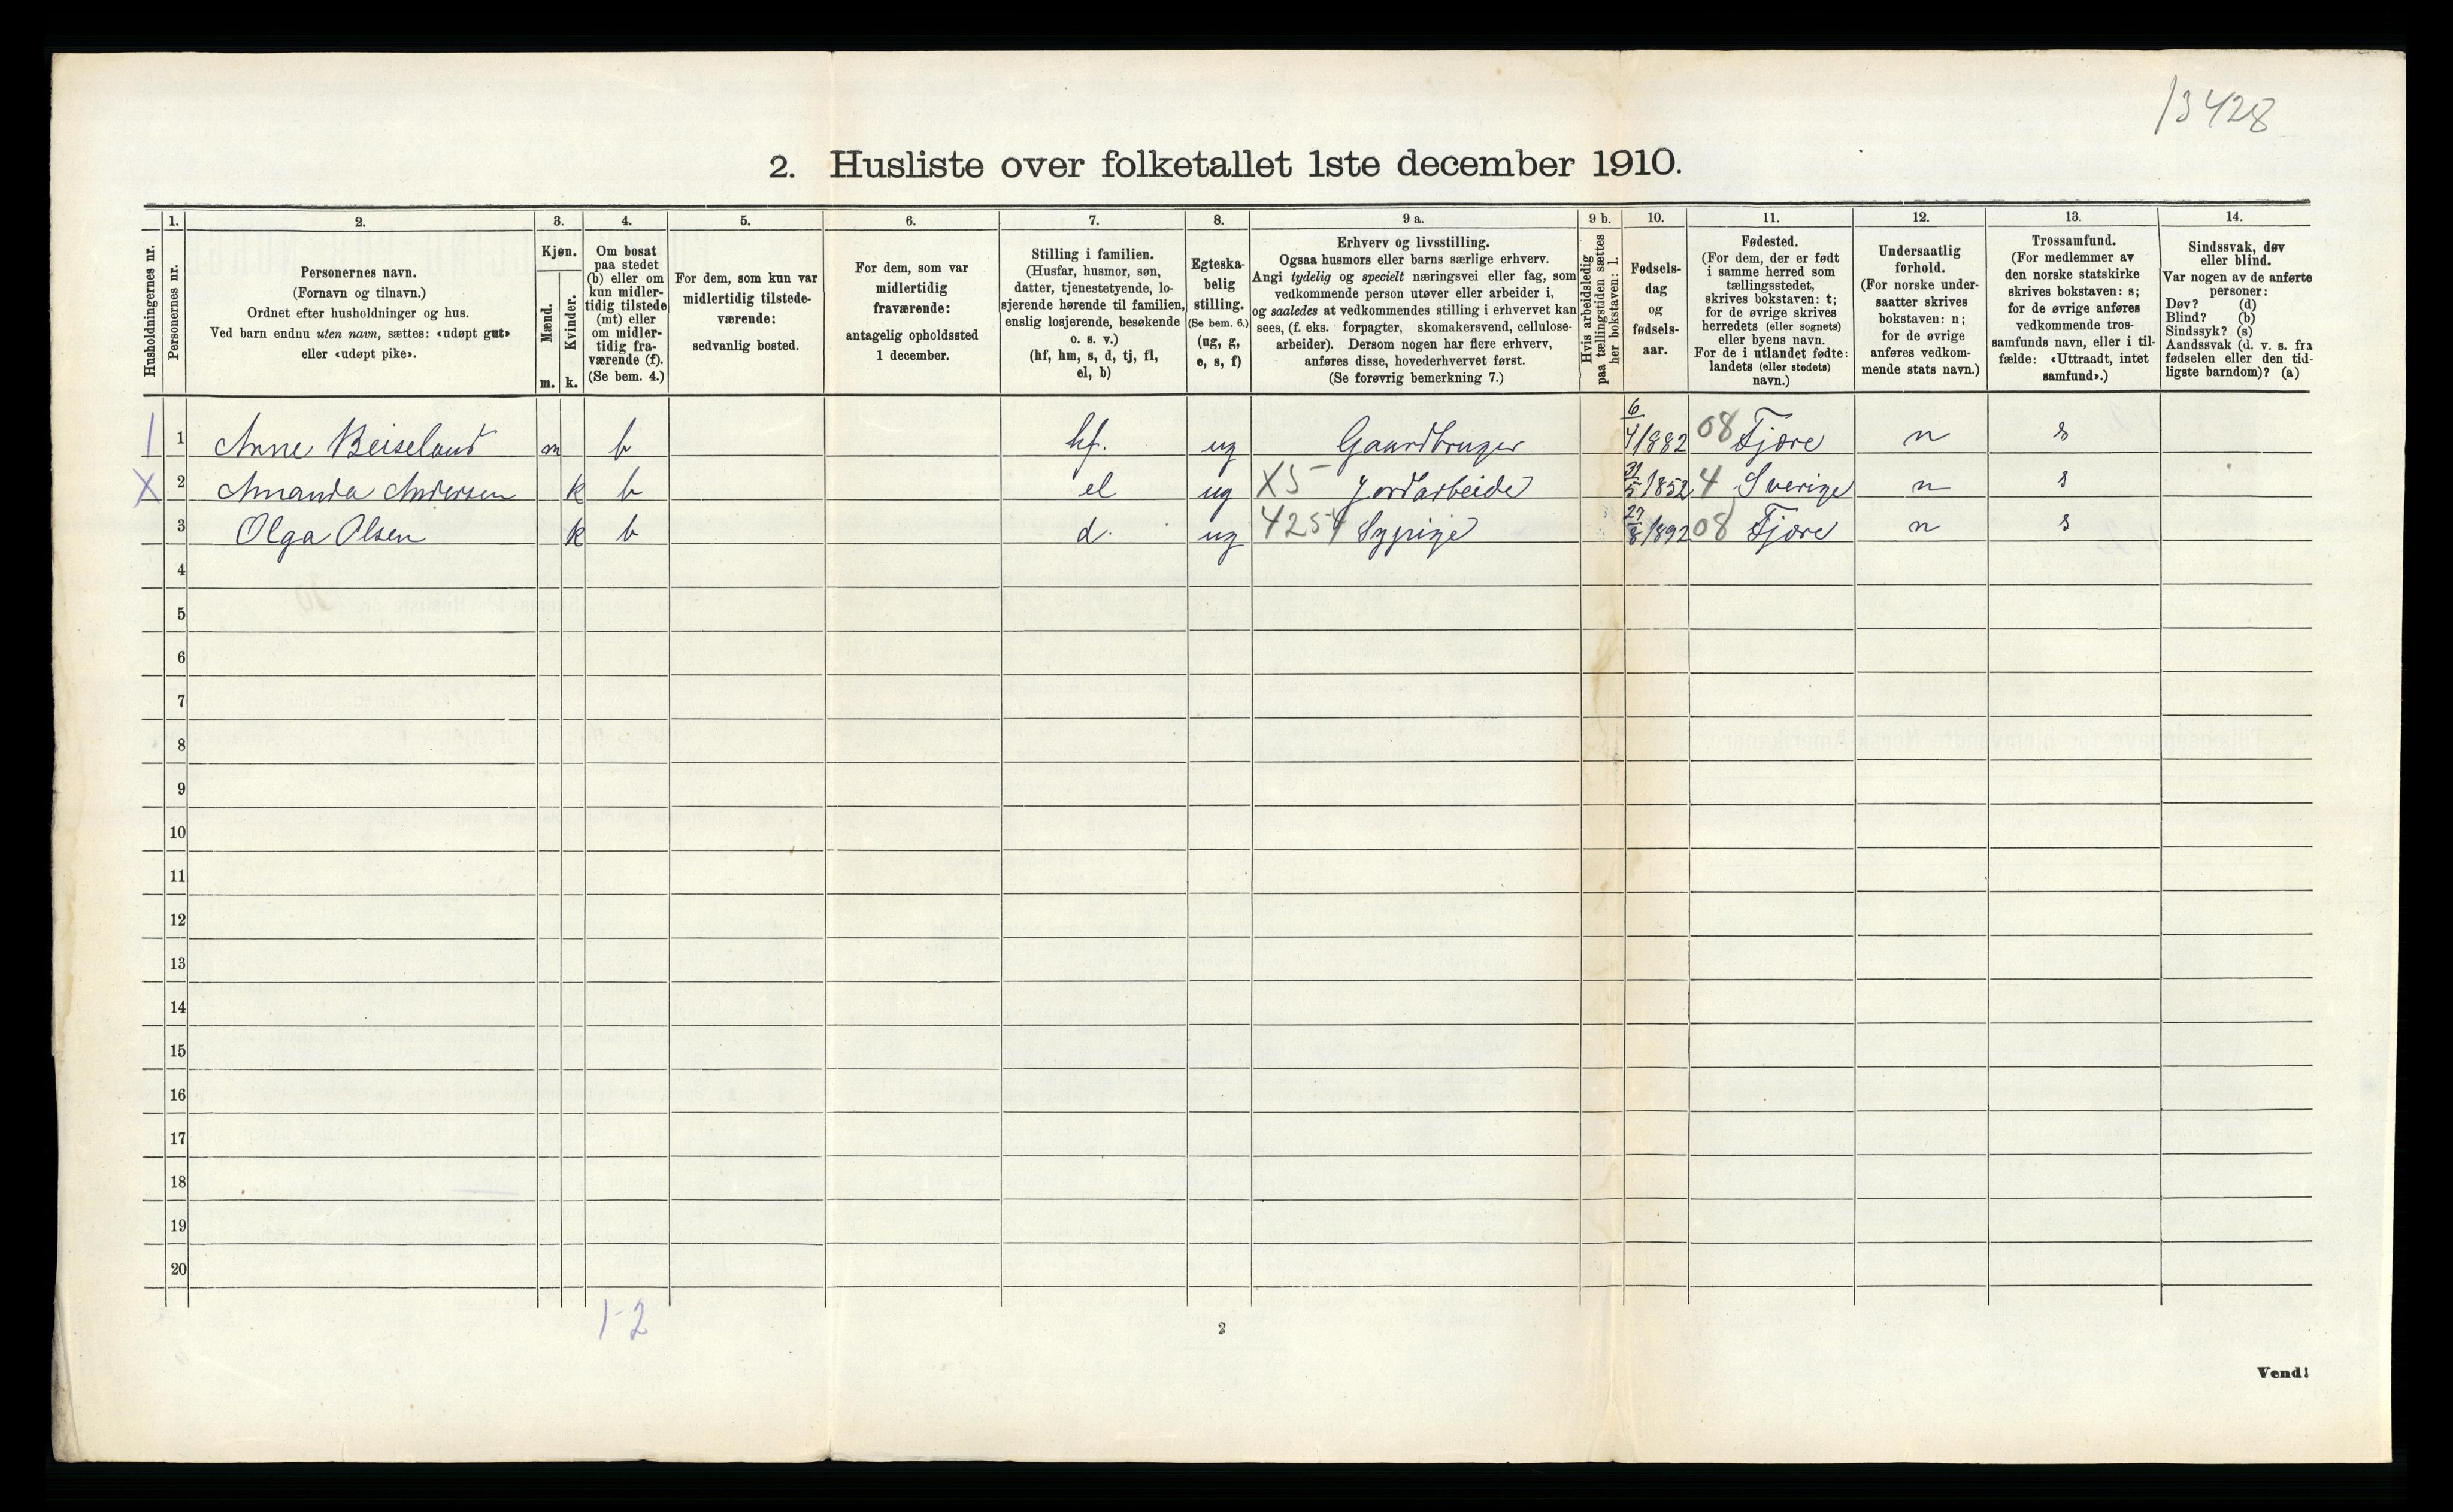 13428
2. Husliste over folketallet 1ste december 1910.
Husholdningernes nr.
1. Personernes nr.
2. Personernes navn. (Fornavn og tilnavn.) Ordnet efter husholdninger og hus. Ved barn endnu uten navn, sættes: «udøpt gut» eller «udøpt pike».
3. Kjøn. Mænd. m. Kvinder. k.
4. Om bosat paa stedet (b) eller om kun midlertidig tilstede (mt) eller om midlertidig fraværende (f). (Se bem. 4.)
5. For dem, som kun var midlertidig tilstedeværende: sedvanlig bosted.
6. For dem, som var midlertidig fraværende: antagelig opholdssted 1 december.
7. Stilling i familien. (Husfar, husmor, søn, datter, tjenestetyende, losjerende hørende til familien, enslig losjerende, besøkende o. s. v.) (hf, hm, s, d, tj, fl, el, b)
8. Egteskabelig stilling. (Se bem. 6.) (ug, g, e, s, f)
9 a. Erhverv og livsstilling. Ogsaa husmors eller barns særlige erhverv. Angi tydelig og specielt næringsvei eller fag, som vedkommende person utøver eller arbeider i, og saaledes at vedkommendes stilling i erhvervet kan sees, (f. eks. forpagter, skomakersvend, cellulosearbeider). Dersom nogen har flere erhverv, anføres disse, hovederhvervet først. (Se forøvrig bemerkning 7.)
9 b. Hvis arbeidsledig paa tællingstiden sættes her bokstaven: l.
10. Fødselsdag og fødselsaar.
11. Fødested. (For dem, der er født i samme herred som tællingsstedet, skrives bokstaven: t; for de øvrige skrives herredets (eller sognets) eller byens navn. For de i utlandet fødte: landets (eller stedets) navn.)
12. Undersaatlig forhold. (For norske undersaatter skrives bokstaven: n; for de øvrige anføres vedkommende stats navn.)
13. Trossamfund. (For medlemmer av den norske statskirke skrives bokstaven: s; for de øvrige anføres vedkommende trossamfunds navn, eller i tilfælde: «Uttraadt, intet samfund».)
14. Sindssvak, døv eller blind. Var nogen av de anførte personer: Døv? (d) Blind? (b) Sindssyk? (s) Aandssvak (d. v. s. fra fødselen eller den tidligste barndom)? (a)
1 1 Arne Beiseland m b hf. ug Gaardbruger 6/4 1882 08 Fjære n s
X 2 Amanda Andersen k b el ug X5 Jordarbeide 31/5 1852 4 Sverige n s
3 Olga Olsen k b d. ug 4254 Sypige 27/8 1892 08 Fjære n s
4
5
6
7
8
9
10
11
12
13
14
15
16
17
18
19
20
1-2
2
Vend!